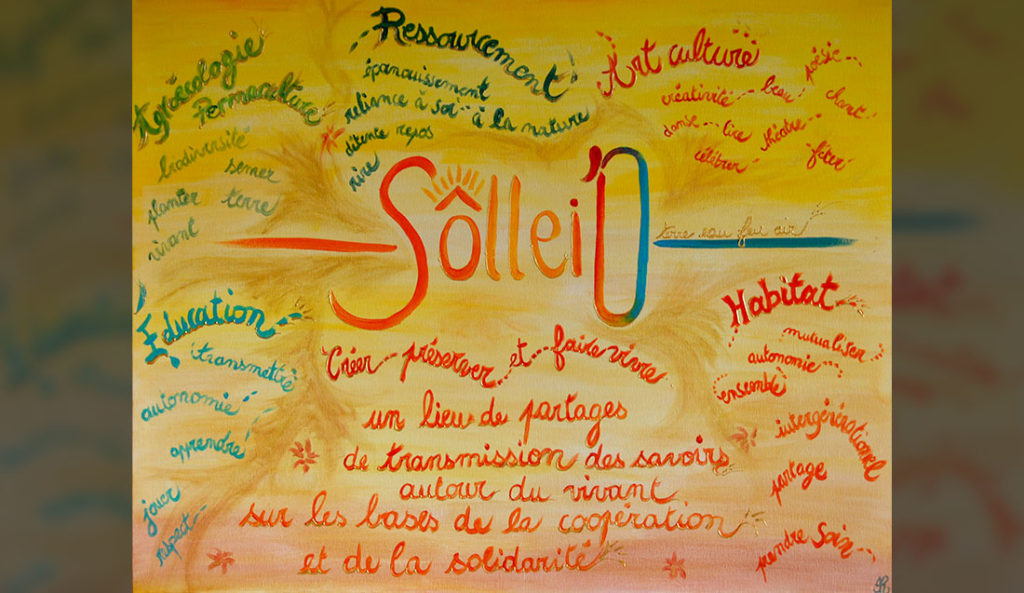 Agroécologie
Permaculture
biodiversité
semer
planter
terre
vivant
Ressourcement
épanouissement
reliance à soi - à la nature
détente repos
rire
Art culture
poésie
créativité beau
chant
danse lire théâtre
célébrer
fêter
Sôllei'O
terre eau feu air
Éducation
transmettre
autonomie
apprendre
jouer
respect
Habitat
mutualiser
autonomie
ensemble
intergénérationel
partage
prendre soin
Créer préserver et faire vivre
un lieu de partages
de transmission des savoirs
autour du vivant
sur les bases de la coopération
et de la solidarité